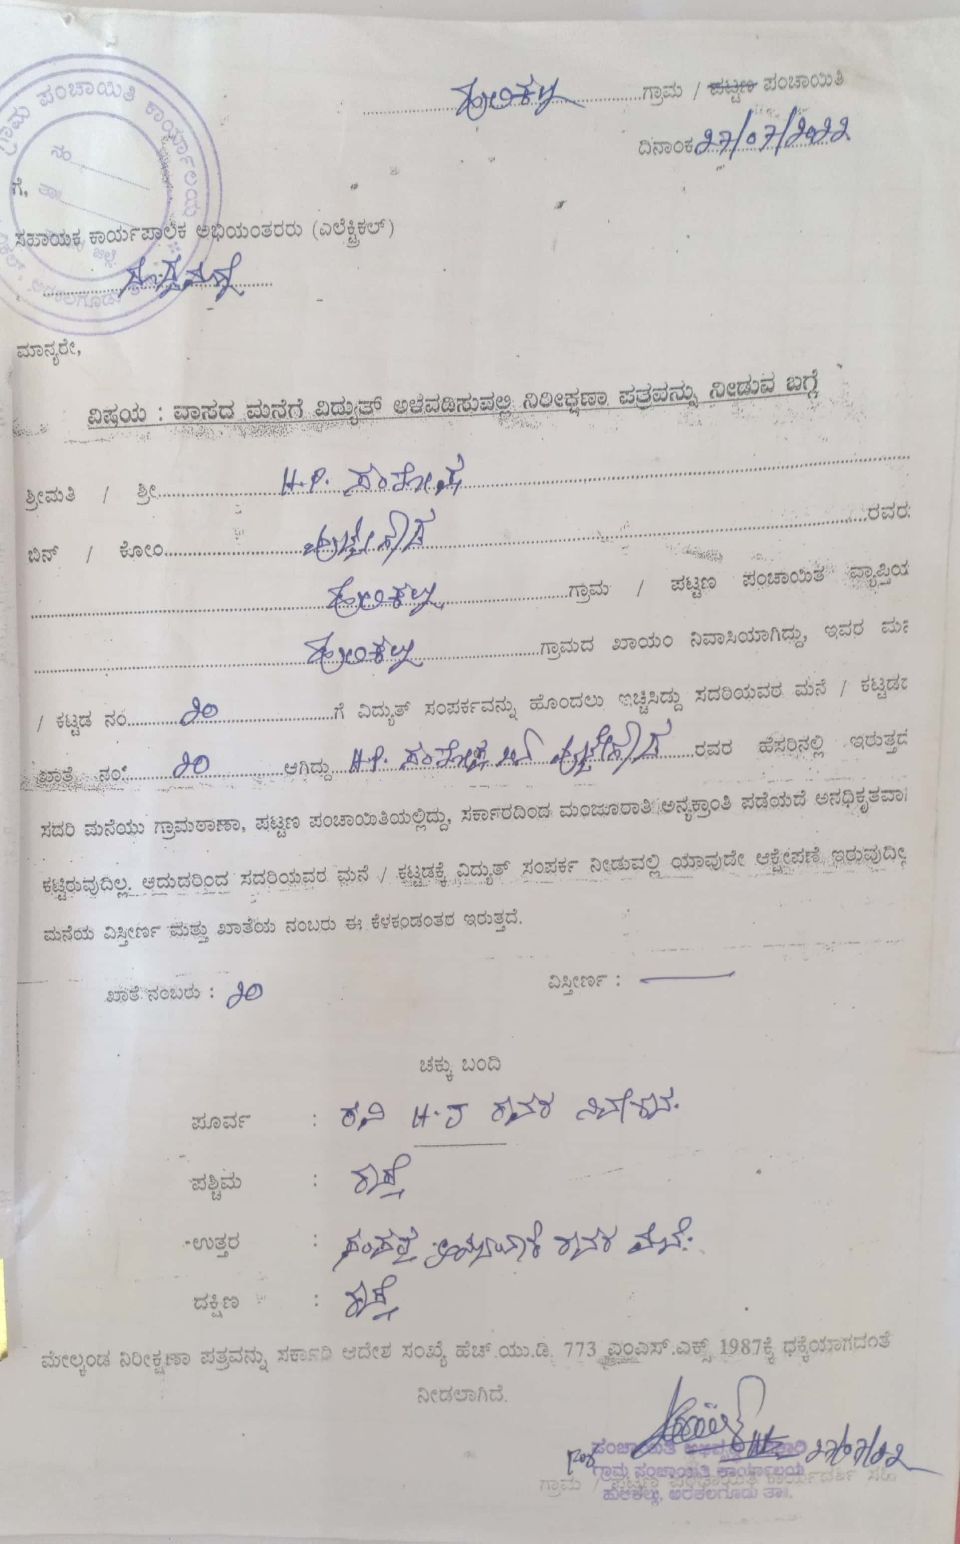 ಹುಲಿಕಲ್ಲು ಗ್ರಾಮ / ಪಟ್ಟಣ ಪಂಚಾಯಿತಿ
ದಿನಾಂಕ 27/07/2022
ಗ್ರಾಮ ಪಂಚಾಯಿತಿ ಕಾರ್ಯಾಲಯ
ನಂ
ತಾ
ಜಿಲ್ಲೆ
ಗೆ,
ಸಹಾಯಕ ಕಾರ್ಯಪಾಲಕ ಅಭಿಯಂತರರು (ಎಲೆಕ್ಟ್ರಿಕಲ್)
ಮಾನ್ಯರೇ,
ವಿಷಯ : ವಾಸದ ಮನೆಗೆ ವಿದ್ಯುತ್ ಅಳವಡಿಸುವಲ್ಲಿ ನಿರೀಕ್ಷಣಾ ಪತ್ರವನ್ನು ನೀಡುವ ಬಗ್ಗೆ
ಶ್ರೀಮತಿ / ಶ್ರೀ H.P. ಸಂತೋಷ
ಬಿನ್ / ಕೋಂ ಪುಟ್ಟೇಗೌಡ ರವರು
ಹುಲಿಕಲ್ಲು ಗ್ರಾಮ / ಪಟ್ಟಣ ಪಂಚಾಯಿತಿ ವ್ಯಾಪ್ತಿಯ
ಹುಲಿಕಲ್ಲು ಗ್ರಾಮದ ಖಾಯಂ ನಿವಾಸಿಯಾಗಿದ್ದು, ಇವರ ಮನೆ
/ ಕಟ್ಟಡ ನಂ 20 ಗೆ ವಿದ್ಯುತ್ ಸಂಪರ್ಕವನ್ನು ಹೊಂದಲು ಇಚ್ಚಿಸಿದ್ದು ಸದರಿಯವರ ಮನೆ / ಕಟ್ಟಡದ
ಖಾತೆ ನಂ. 20 ಆಗಿದ್ದು H.P. ಸಂತೋಷ ಬಿನ್ ಪುಟ್ಟೇಗೌಡ ರವರ ಹೆಸರಿನಲ್ಲಿ ಇರುತ್ತದೆ
ಸದರಿ ಮನೆಯು ಗ್ರಾಮಠಾಣಾ, ಪಟ್ಟಣ ಪಂಚಾಯಿತಿಯಲ್ಲಿದ್ದು, ಸರ್ಕಾರದಿಂದ ಮಂಜೂರಾತಿ ಅನ್ಯಕ್ರಾಂತಿ ಪಡೆಯದೆ ಅನಧಿಕೃತವಾಗಿ
ಕಟ್ಟಿರುವುದಿಲ್ಲ. ಆದುದರಿಂದ ಸದರಿಯವರ ಮನೆ / ಕಟ್ಟಡಕ್ಕೆ ವಿದ್ಯುತ್ ಸಂಪರ್ಕ ನೀಡುವಲ್ಲಿ ಯಾವುದೇ ಆಕ್ಷೇಪಣೆ ಇರುವುದಿಲ್ಲ
ಮನೆಯ ವಿಸ್ತೀರ್ಣ ಮತ್ತು ಖಾತೆಯ ನಂಬರು ಈ ಕೆಳಕಂಡಂತರ ಇರುತ್ತದೆ.
ಖಾತೆ ನಂಬರು : 20 ವಿಸ್ತೀರ್ಣ : —
ಚಕ್ಕು ಬಂದಿ
ಪೂರ್ವ : ರವಿ H.J ರವರ ನಿವೇಶನ.
ಪಶ್ಚಿಮ : ರಸ್ತೆ
ಉತ್ತರ : ರವರ ಮನೆ.
ದಕ್ಷಿಣ : ರಸ್ತೆ
ಮೇಲ್ಕಂಡ ನಿರೀಕ್ಷಣಾ ಪತ್ರವನ್ನು ಸರ್ಕಾರಿ ಆದೇಶ ಸಂಖ್ಯೆ ಹೆಚ್.ಯು.ಡಿ. 773 ಎಂಎಸ್.ಎಕ್ಸ್ 1987ಕ್ಕೆ ಧಕ್ಕೆಯಾಗದಂತೆ
ನೀಡಲಾಗಿದೆ.
for ಪಂಚಾಯಿತಿ ಅಭಿವೃದ್ಧಿ ಅಧಿಕಾರಿ 27/07/22
ಗ್ರಾಮ ಪಂಚಾಯಿತಿ ಕಾರ್ಯಾಲಯ
ಗ್ರಾಮ / ಪಟ್ಟಣ ಪಂಚಾಯಿತಿ ಕಾರ್ಯದರ್ಶಿ ಸಹಿ
ಹುಲಿಕಲ್ಲು, ಅರಕಲಗೂಡು ತಾ.